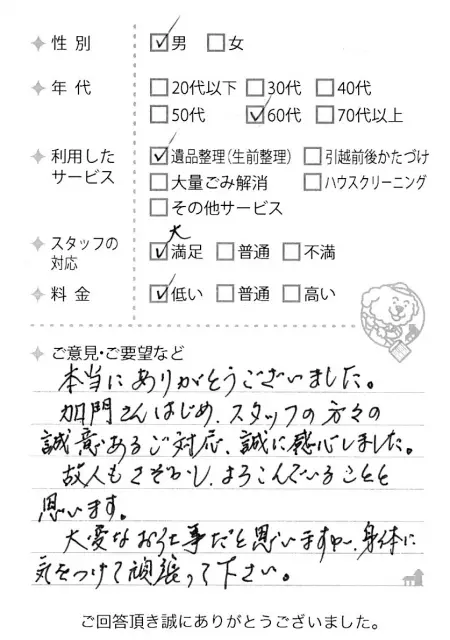 性別 ☑男 □女
年代 □20代以下 □30代 □40代
□50代 ☑60代 □70代以上
利用した
サービス
☑遺品整理(生前整理) □引越前後かたづけ
□大量ごみ解消 □ハウスクリーニング
□その他サービス
スタッフの
対応
大
☑満足 □普通 □不満
料金 ☑低い □普通 □高い
ご意見・ご要望など
本当にありがとうございました。
加門さんはじめ、スタッフの方々の
誠意あるご対応、誠に感心しました。
故人もさぞかし、よろこんでいることと
思います。
大変なお仕事だと思いますが、身体に
気をつけて頑張って下さい。
ご回答頂き誠にありがとうございました。